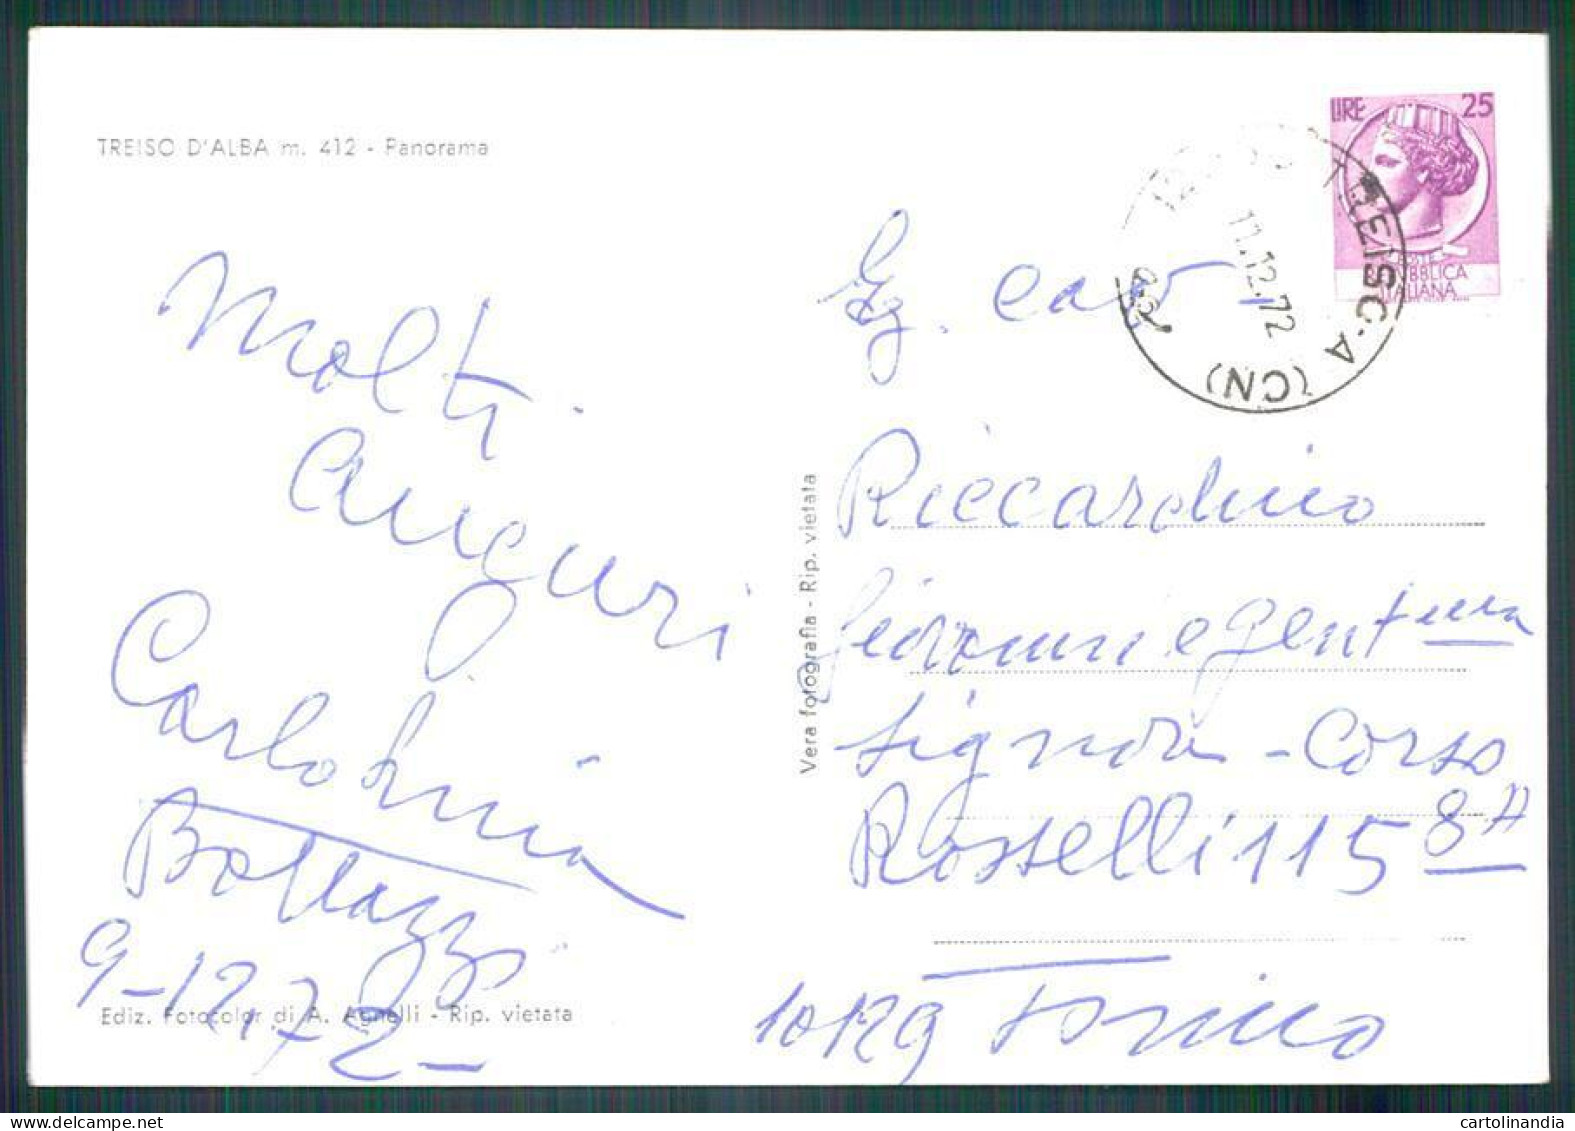 TREISO D'ALBA m. 412 - Panorama
LIRE 25
POSTE
REPUBBLICA
ITALIANA
TREISO-A (CN)
11.12.72
Molti
auguri
Carlo
Bottazzi
9-12.72-
Ediz. Fotocolor di A. Agnelli - Rip. vietata
Vera fotografia - Rip. vietata
Eg. cav.
Riccardino
Giovanni e gent.ma
Signora - Corso
Rosselli 115 8A
10129 Torino
cartolinandia